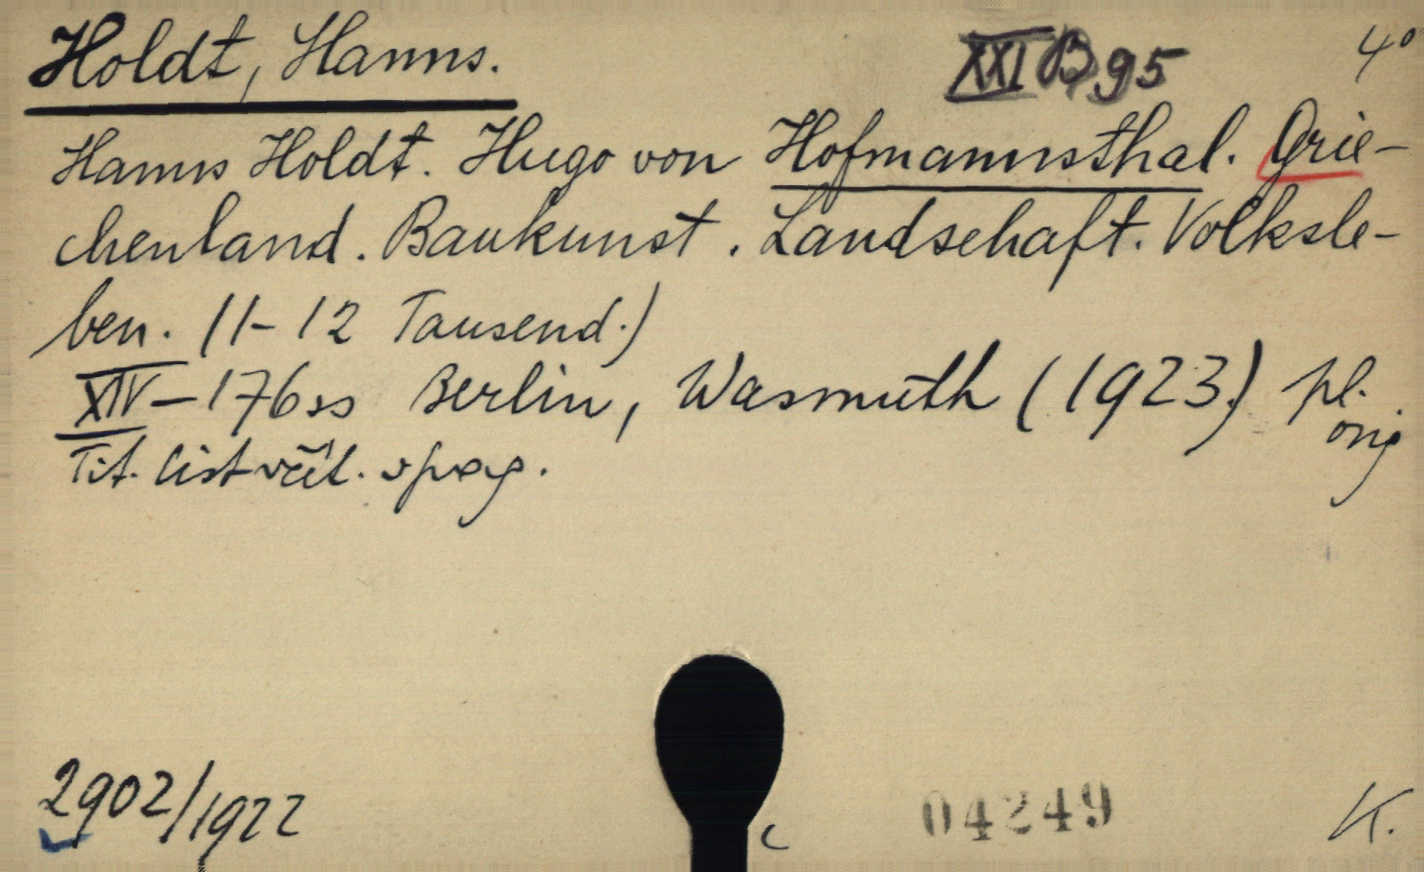 Holdt, Hanns. XXI B 95 4°
Hanns Holdt. Hugo von Hofmannsthal. Grie-
chenland. Baukunst. Landschaft. Volksle-
ben. (11-12 Tausend.)
XIV-176 ss Berlin, Wasmuth (1923.) pl.
orig
Tit. list
2902/1922
04249
C
K.